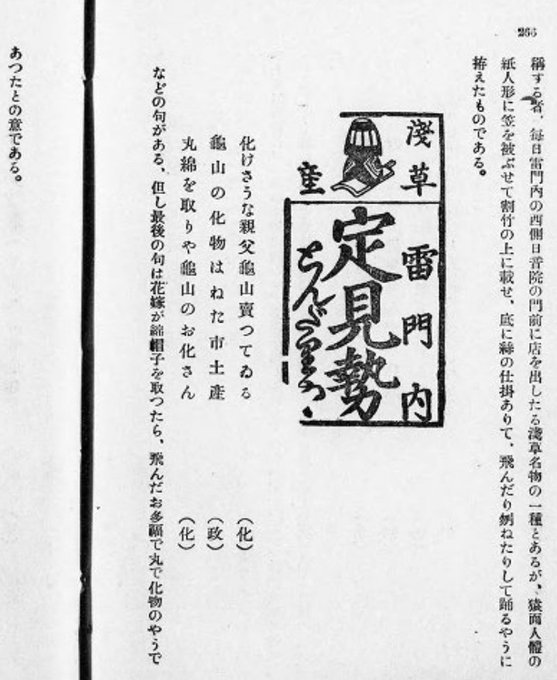 266
稱する者、毎日雷門內の西側日音院の門前に店を出したる淺草名物の一種とあるが、猿面人體の
紙人形に笠を被ぶせて割竹の上に載せ、底に絲の仕掛ありて、飛んだり刎ねたりして踊るやうに
拵えたものである。
淺草
雷門內
定見勢
とんだり
化けさうな親父龜山賣つてゐる
(化)
龜山の化物はねた市土產
(政)
丸綿を取りや龜山のお化さん
(化)
などの句がある、但し最後の句は花嫁が綿帽子を取つたら、飛んだお多福で丸で化物のやうで
あつたとの意である。